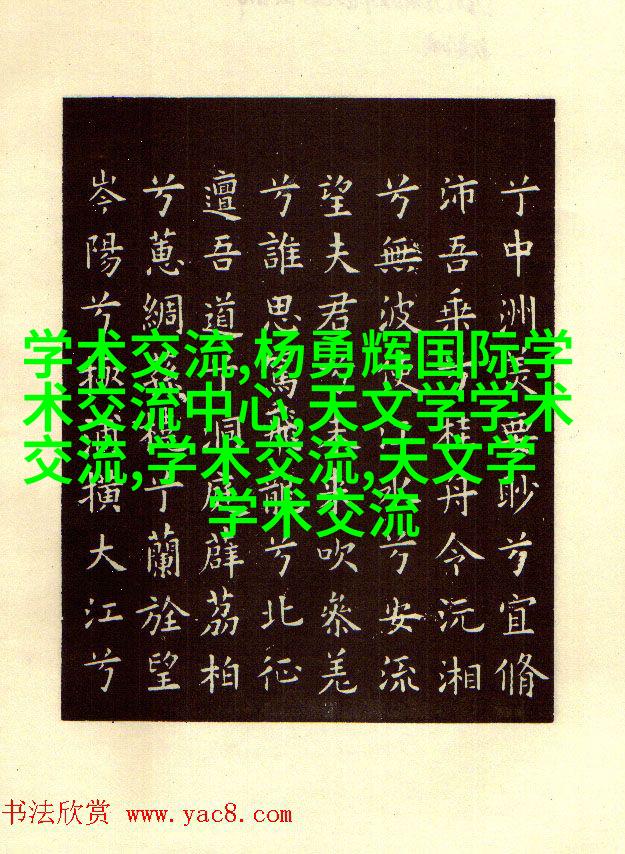 亍中洲羙要眇兮宜脩
沛吾乘兮桂舟令沅湘
兮無波使江水兮安流
望夫君兮未来吹叅羌
兮誰思駕飛龍兮北征
邅吾道兮洞庭薜荔柏
兮蕙綢蓀橈兮蘭旌望
岑陽兮極浦横大江兮
学术交流,杨勇辉国际学
术交流中心,天文学学术
交流,学术交流,夫文学
学术交流
书法欣赏 www.yac8.com